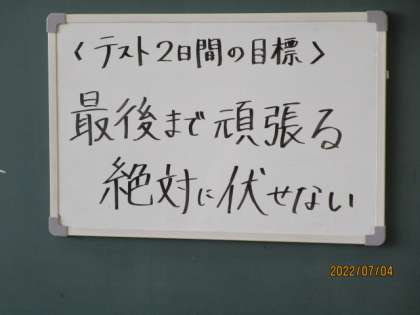 〈テスト2日間の目標〉
最後まで頑張る
絶対に伏せない
2022/07/04